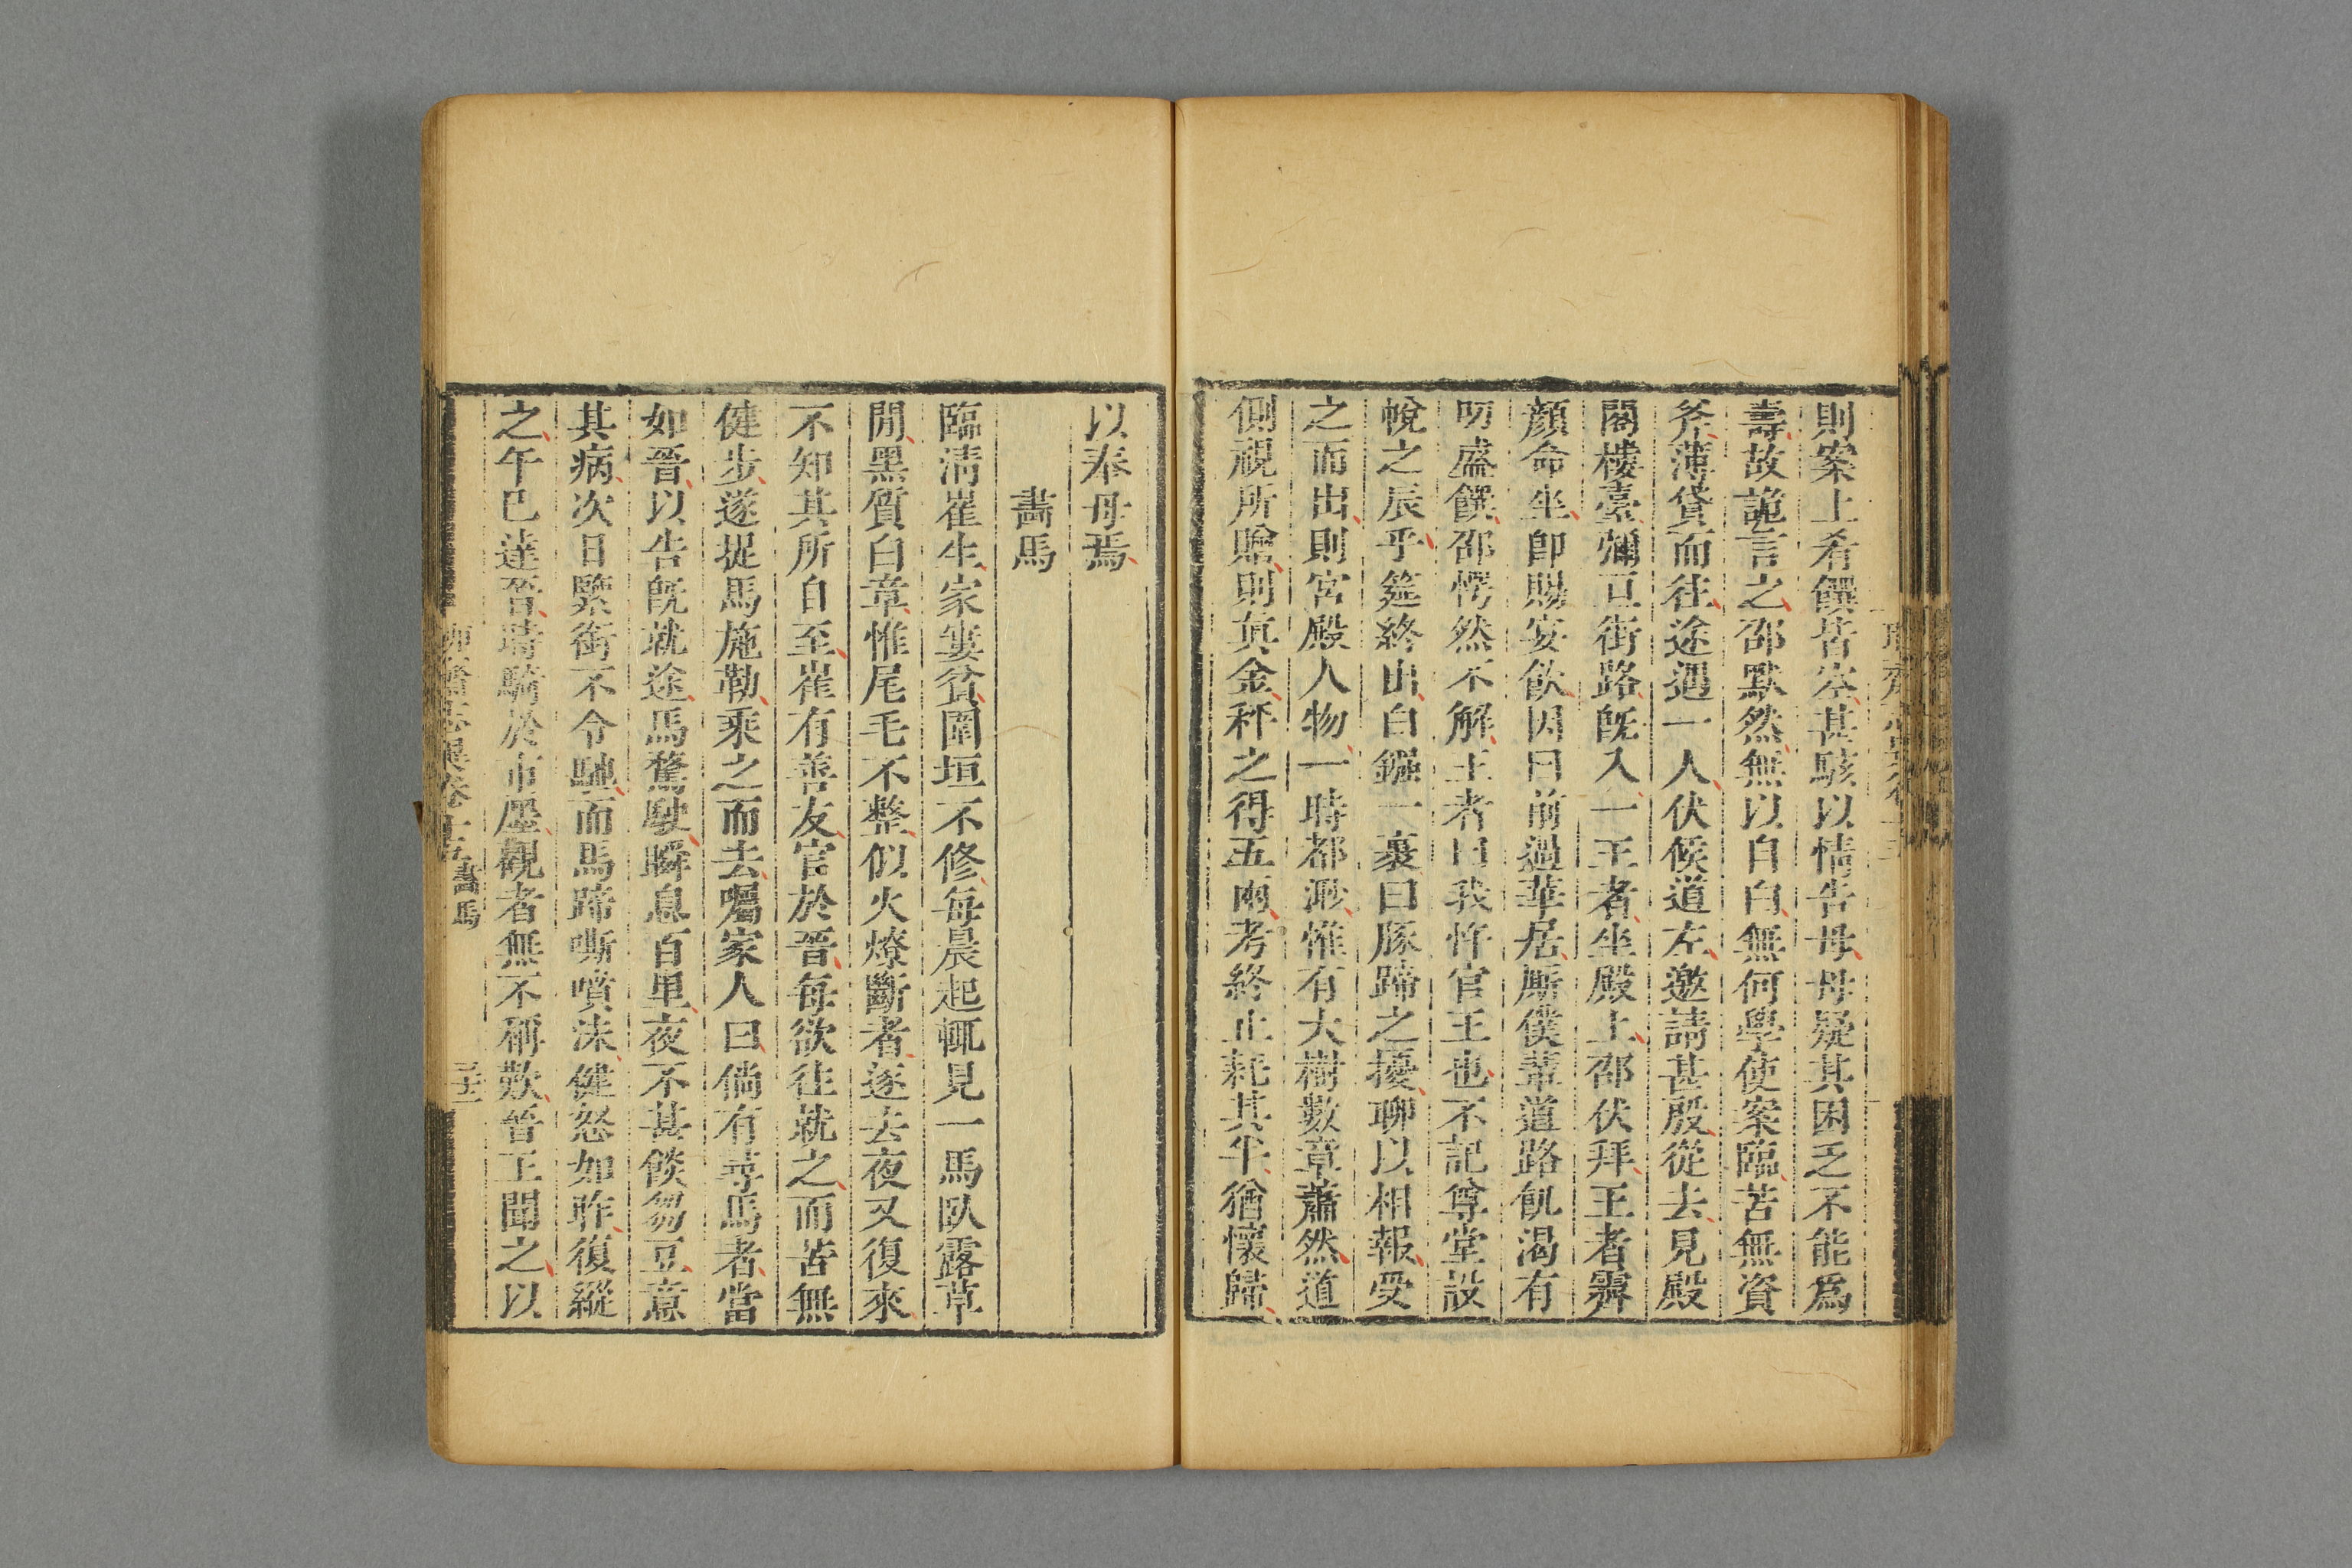 則案上肴饌皆空甚駭以情告母母疑其困乏不能爲
壽故詭言之邵默然無以自白無何學使案臨苦無資
斧薄貸而往途遇一人伏候道左邀請甚殷從去見殿
閣樓臺彌亘街路旣入一王者坐殿上邵伏拜王者霽
顏命坐卽賜宴飲因曰前過華居厮僕輩道路飢渴有
叨盛饌邵愕然不解王者曰我忤官王也不記尊堂設
帨之辰乎筵終出白鏹一裹曰豚蹄之擾聊以相報受
之而出則宮殿人物一時都渺惟有大樹數章蕭然道
側視所贈則眞金秤之得五兩考終止耗其半猶懷歸
以奉母焉
畵馬
臨淸崔生家窶貧圍垣不修每晨起輒見一馬臥露草
閒黑質白章惟尾毛不整似火燎斷者逐去夜又復來
不知其所自至崔有善友官於晉每欲往就之而苦無
健步遂捉馬施勒乘之而去囑家人曰倘有尋馬者當
如晉以告旣就途馬騖駛瞬息百里夜不甚餤芻豆意
其病次日緊銜不令馳而馬蹄嘶噴沫健怒如昨復縱
之午已達晉時騎於市廛觀者無不稱歎晉王聞之以
聊齋志異卷十五 畵馬